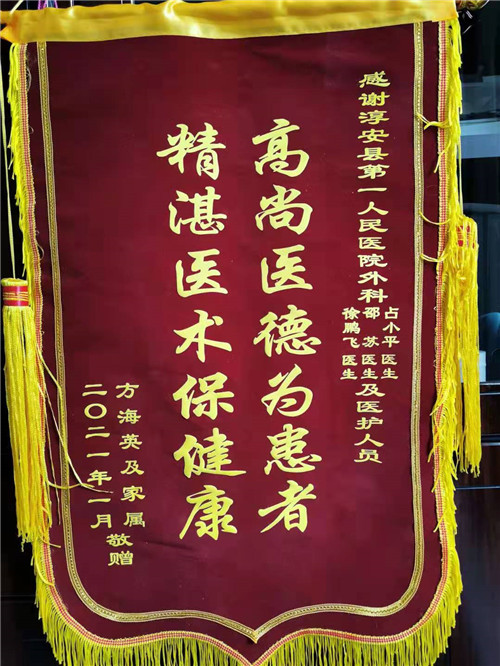 感谢淳安县第一人民医院外科
占小平医生
邵苏医生
徐鹏飞医生
及医护人员
高尚医德为患者
精湛医术保健康
方海英及家属
二〇二一年一月
敬赠